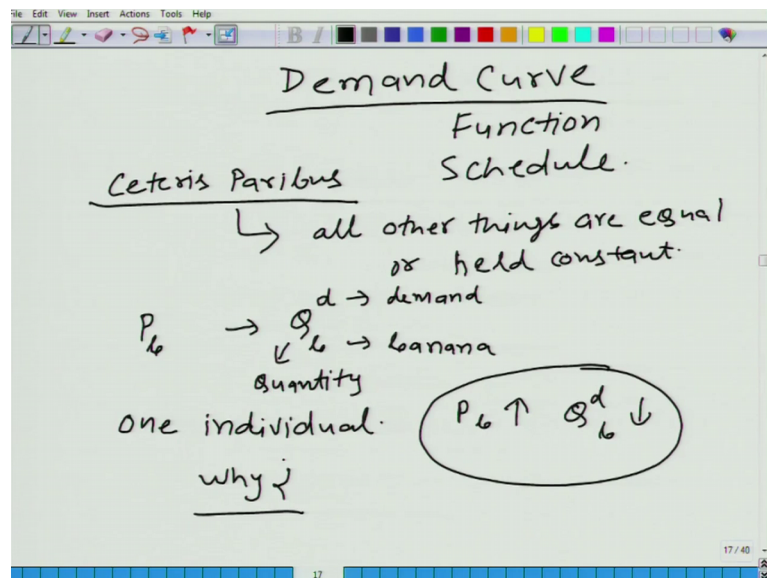 File Edit View Insert Actions Tools Help
B I
Demand Curve
Function
Schedule.
Ceteris Paribus
↳ all other things are equal
or held constant.
d → demand
P_b → Q_b → banana
↙
Quantity
one individual.
P_b ↑ Q^d_b ↓
why ?
17 / 40
17